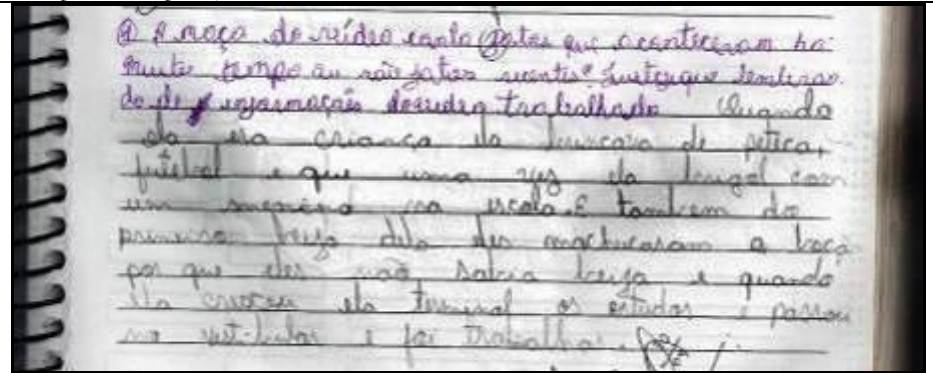 A moça do vídeo conta fatos que aconteceram há
muito tempo ou são fatos recentes? Justifique lembrando
do de informações do vídeo trabalhado. Quando
ela era criança ela brincava de petica,
futebol e que uma vez ela brigol com
um menino na escola. E tambem do
primeiro beijo dela eles machucaram a boca
por que eles não sabia beija e quando
ela cresceu ela terminol os estudos e passou
no vest-bular e foi trabalhar.